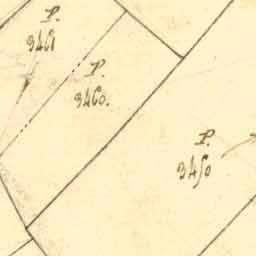 P.
3461
P.
3460.
P.
3450